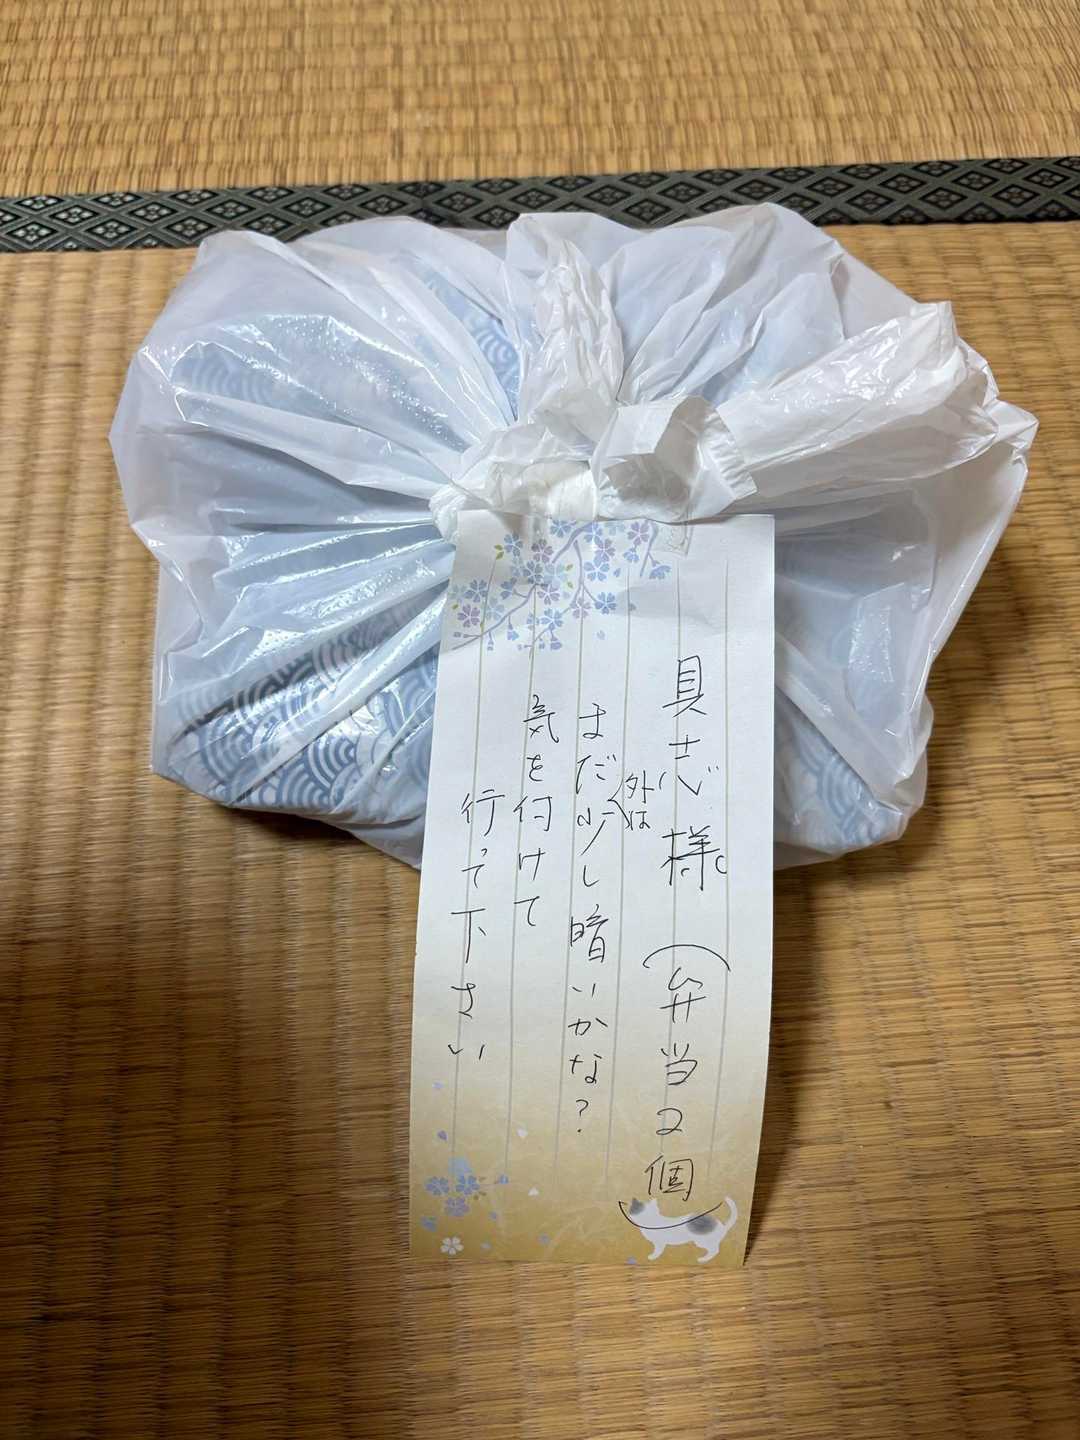 具志様(弁当2個)
まだ外は少し暗いかな?
気を付けて
行って下さい